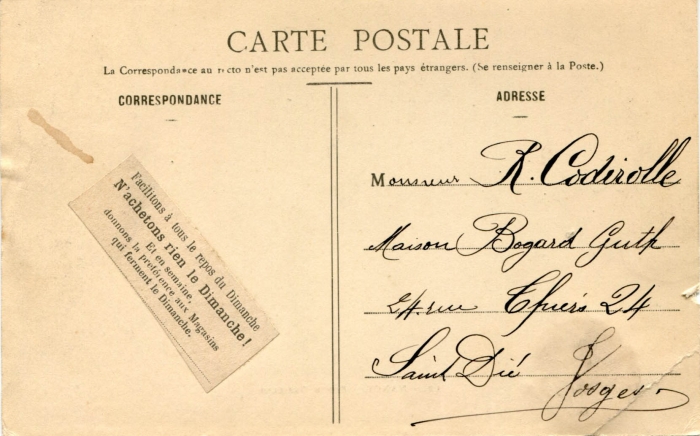 CARTE POSTALE
La Correspondance au recto n'est pas acceptée par tous les pays étrangers. (Se renseigner à la Poste.)
CORRESPONDANCE
Facilitons à tous le repos du Dimanche
N'achetons rien le Dimanche!
Et en semaine,
donnons la préférence aux Magasins
qui ferment le Dimanche.
ADRESSE
Monsieur R. Codirolle
Maison Bogard Guth
24. rue Thiers 24
Saint Dié Vosges